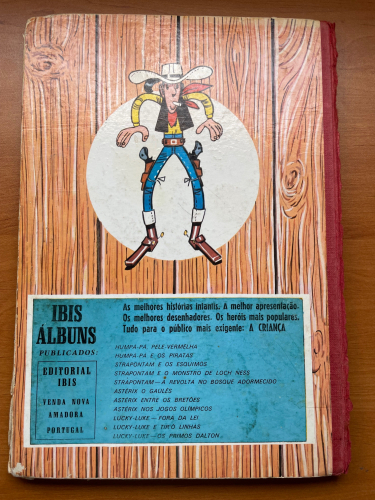 IBIS
ÁLBUNS
PUBLICADOS:
EDITORIAL
IBIS
VENDA NOVA
AMADORA
PORTUGAL
As melhores histórias infantis. A melhor apresentação.
Os melhores desenhadores. Os heróis mais populares.
Tudo para o público mais exigente: A CRIANÇA
HUMPÁ-PÁ, PELE-VERMELHA
HUMPÁ-PÁ E OS PIRATAS
STRAPONTAM E OS ESQUIMOS
STRAPONTAM E O MONSTRO DE LOCH NESS
STRAPONTAM—A REVOLTA NO BOSQUE ADORMECIDO
ASTÉRIX O GAULÊS
ASTÉRIX ENTRE OS BRETÕES
ASTÉRIX NOS JOGOS OLÍMPICOS
LUCKY-LUKE — FORA DA LEI
LUCKY-LUKE E DICO LINHAS
LUCKY-LUKE—OS PRIMOS DALTON